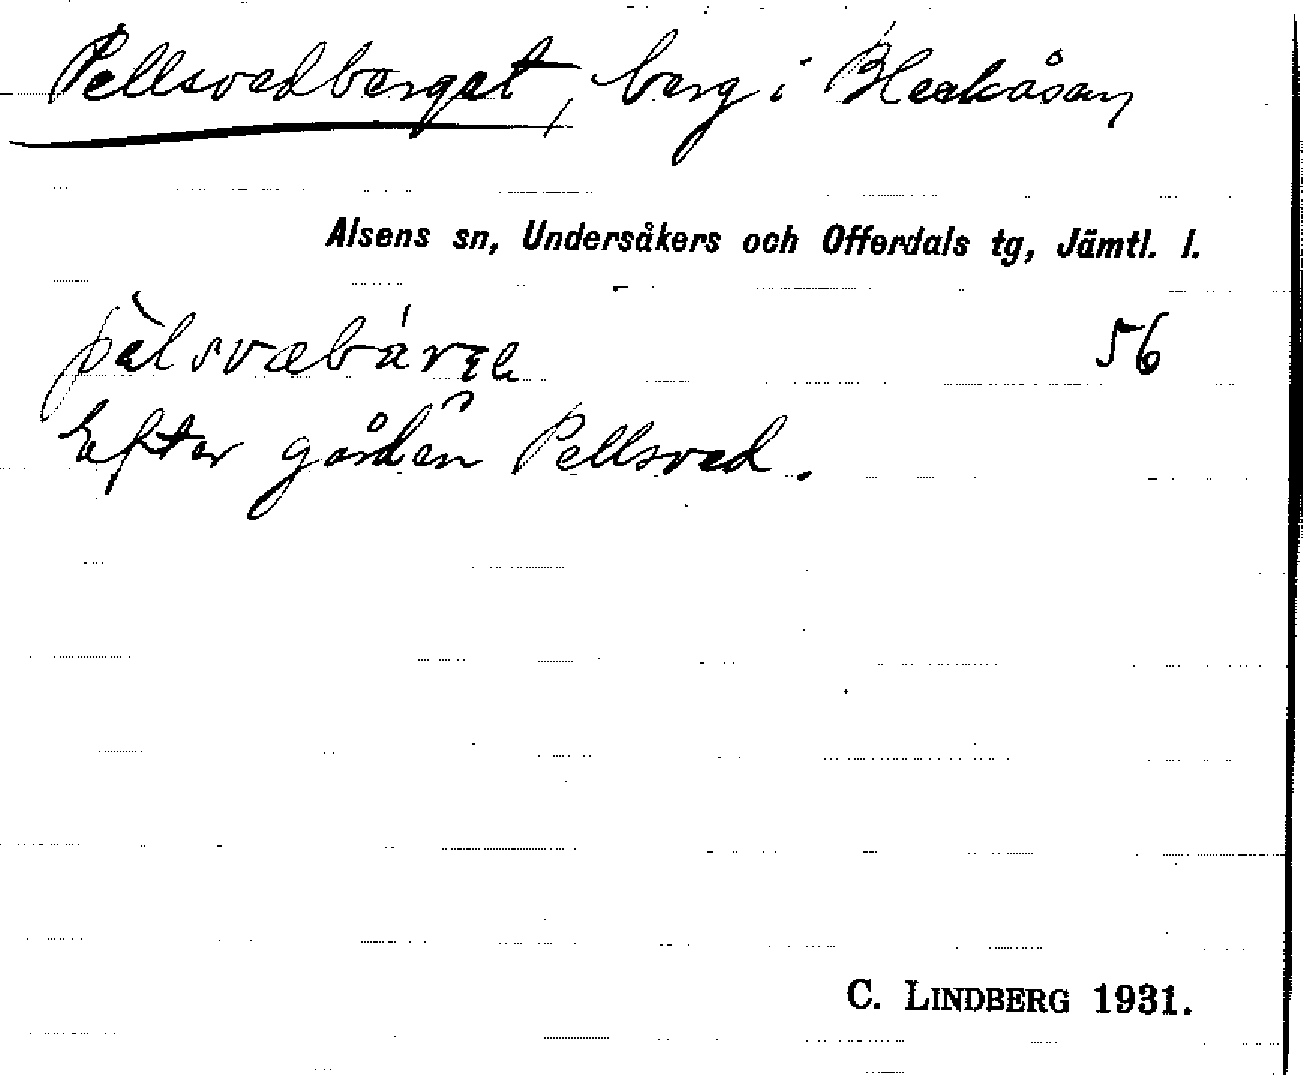 Pellsvedberget, berg i Bleckåsen
Alsens sn, Undersåkers och Offerdals tg, Jämtl. l.
56
Efter gården Pellsved.
C. LINDBERG 1931.